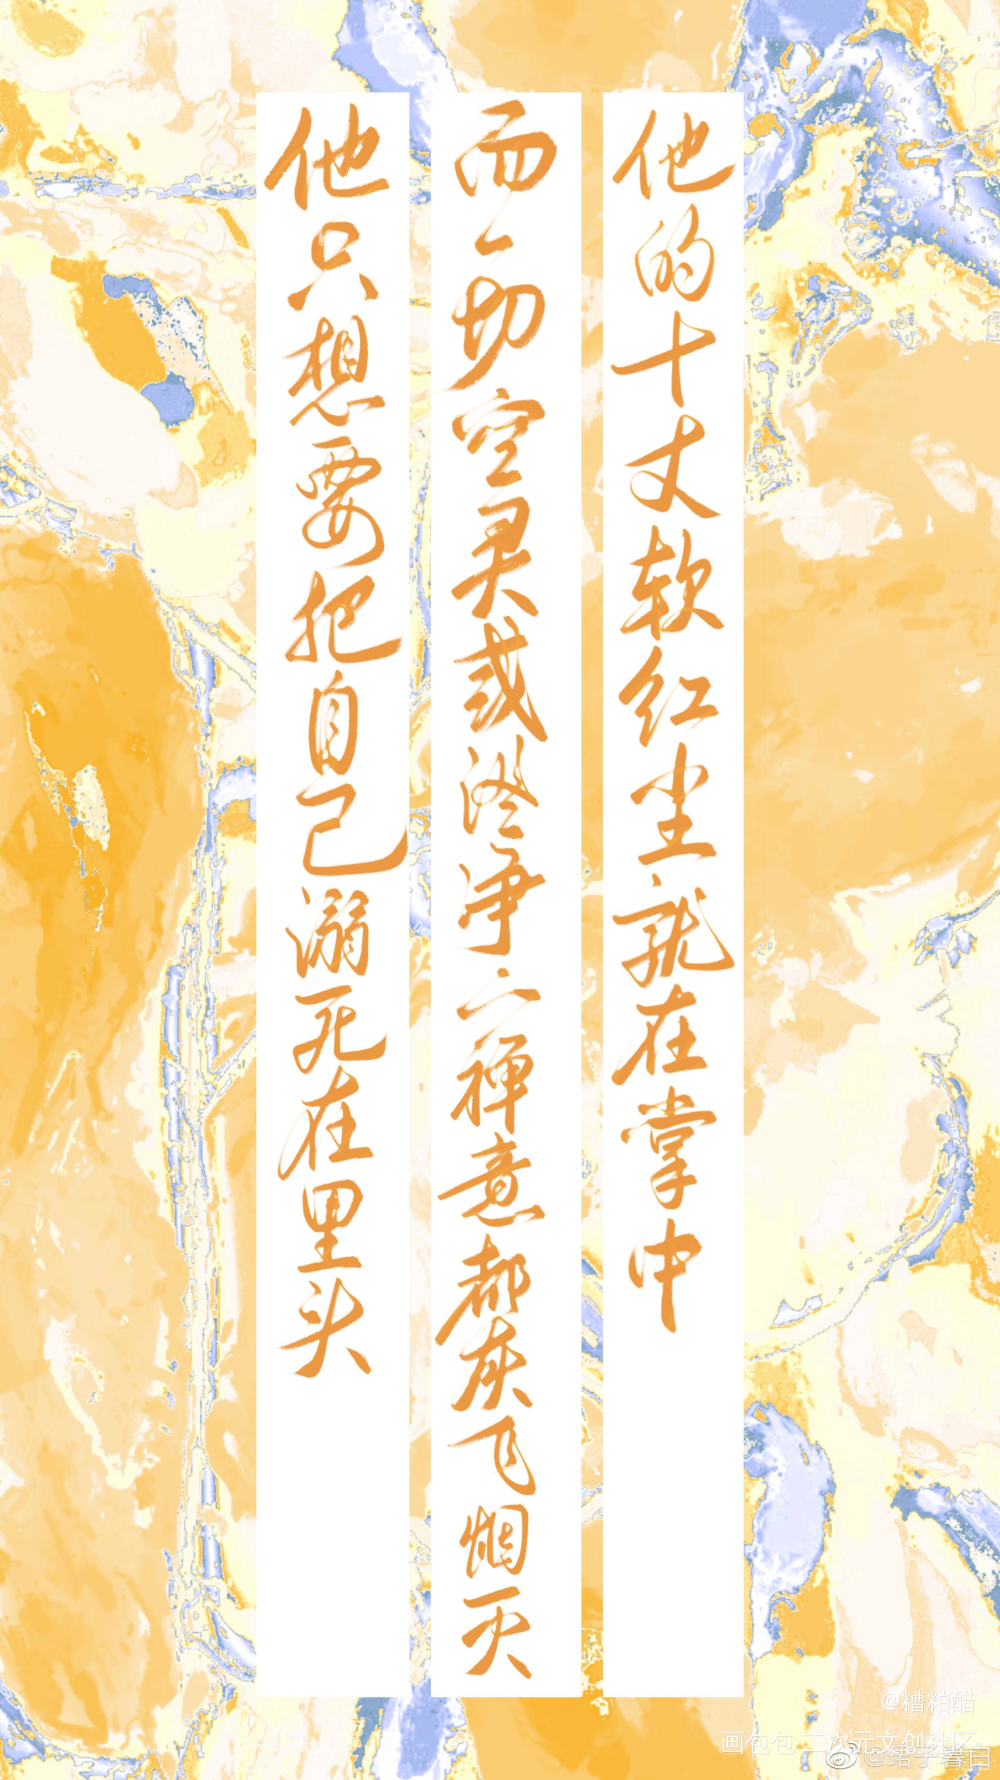 他的十丈软红尘就在掌中
而一切空灵或澄净之禅意都灰飞烟灭
他只想要把自己溺死在里头
@糟粕醋
画包包 二次元文创社区